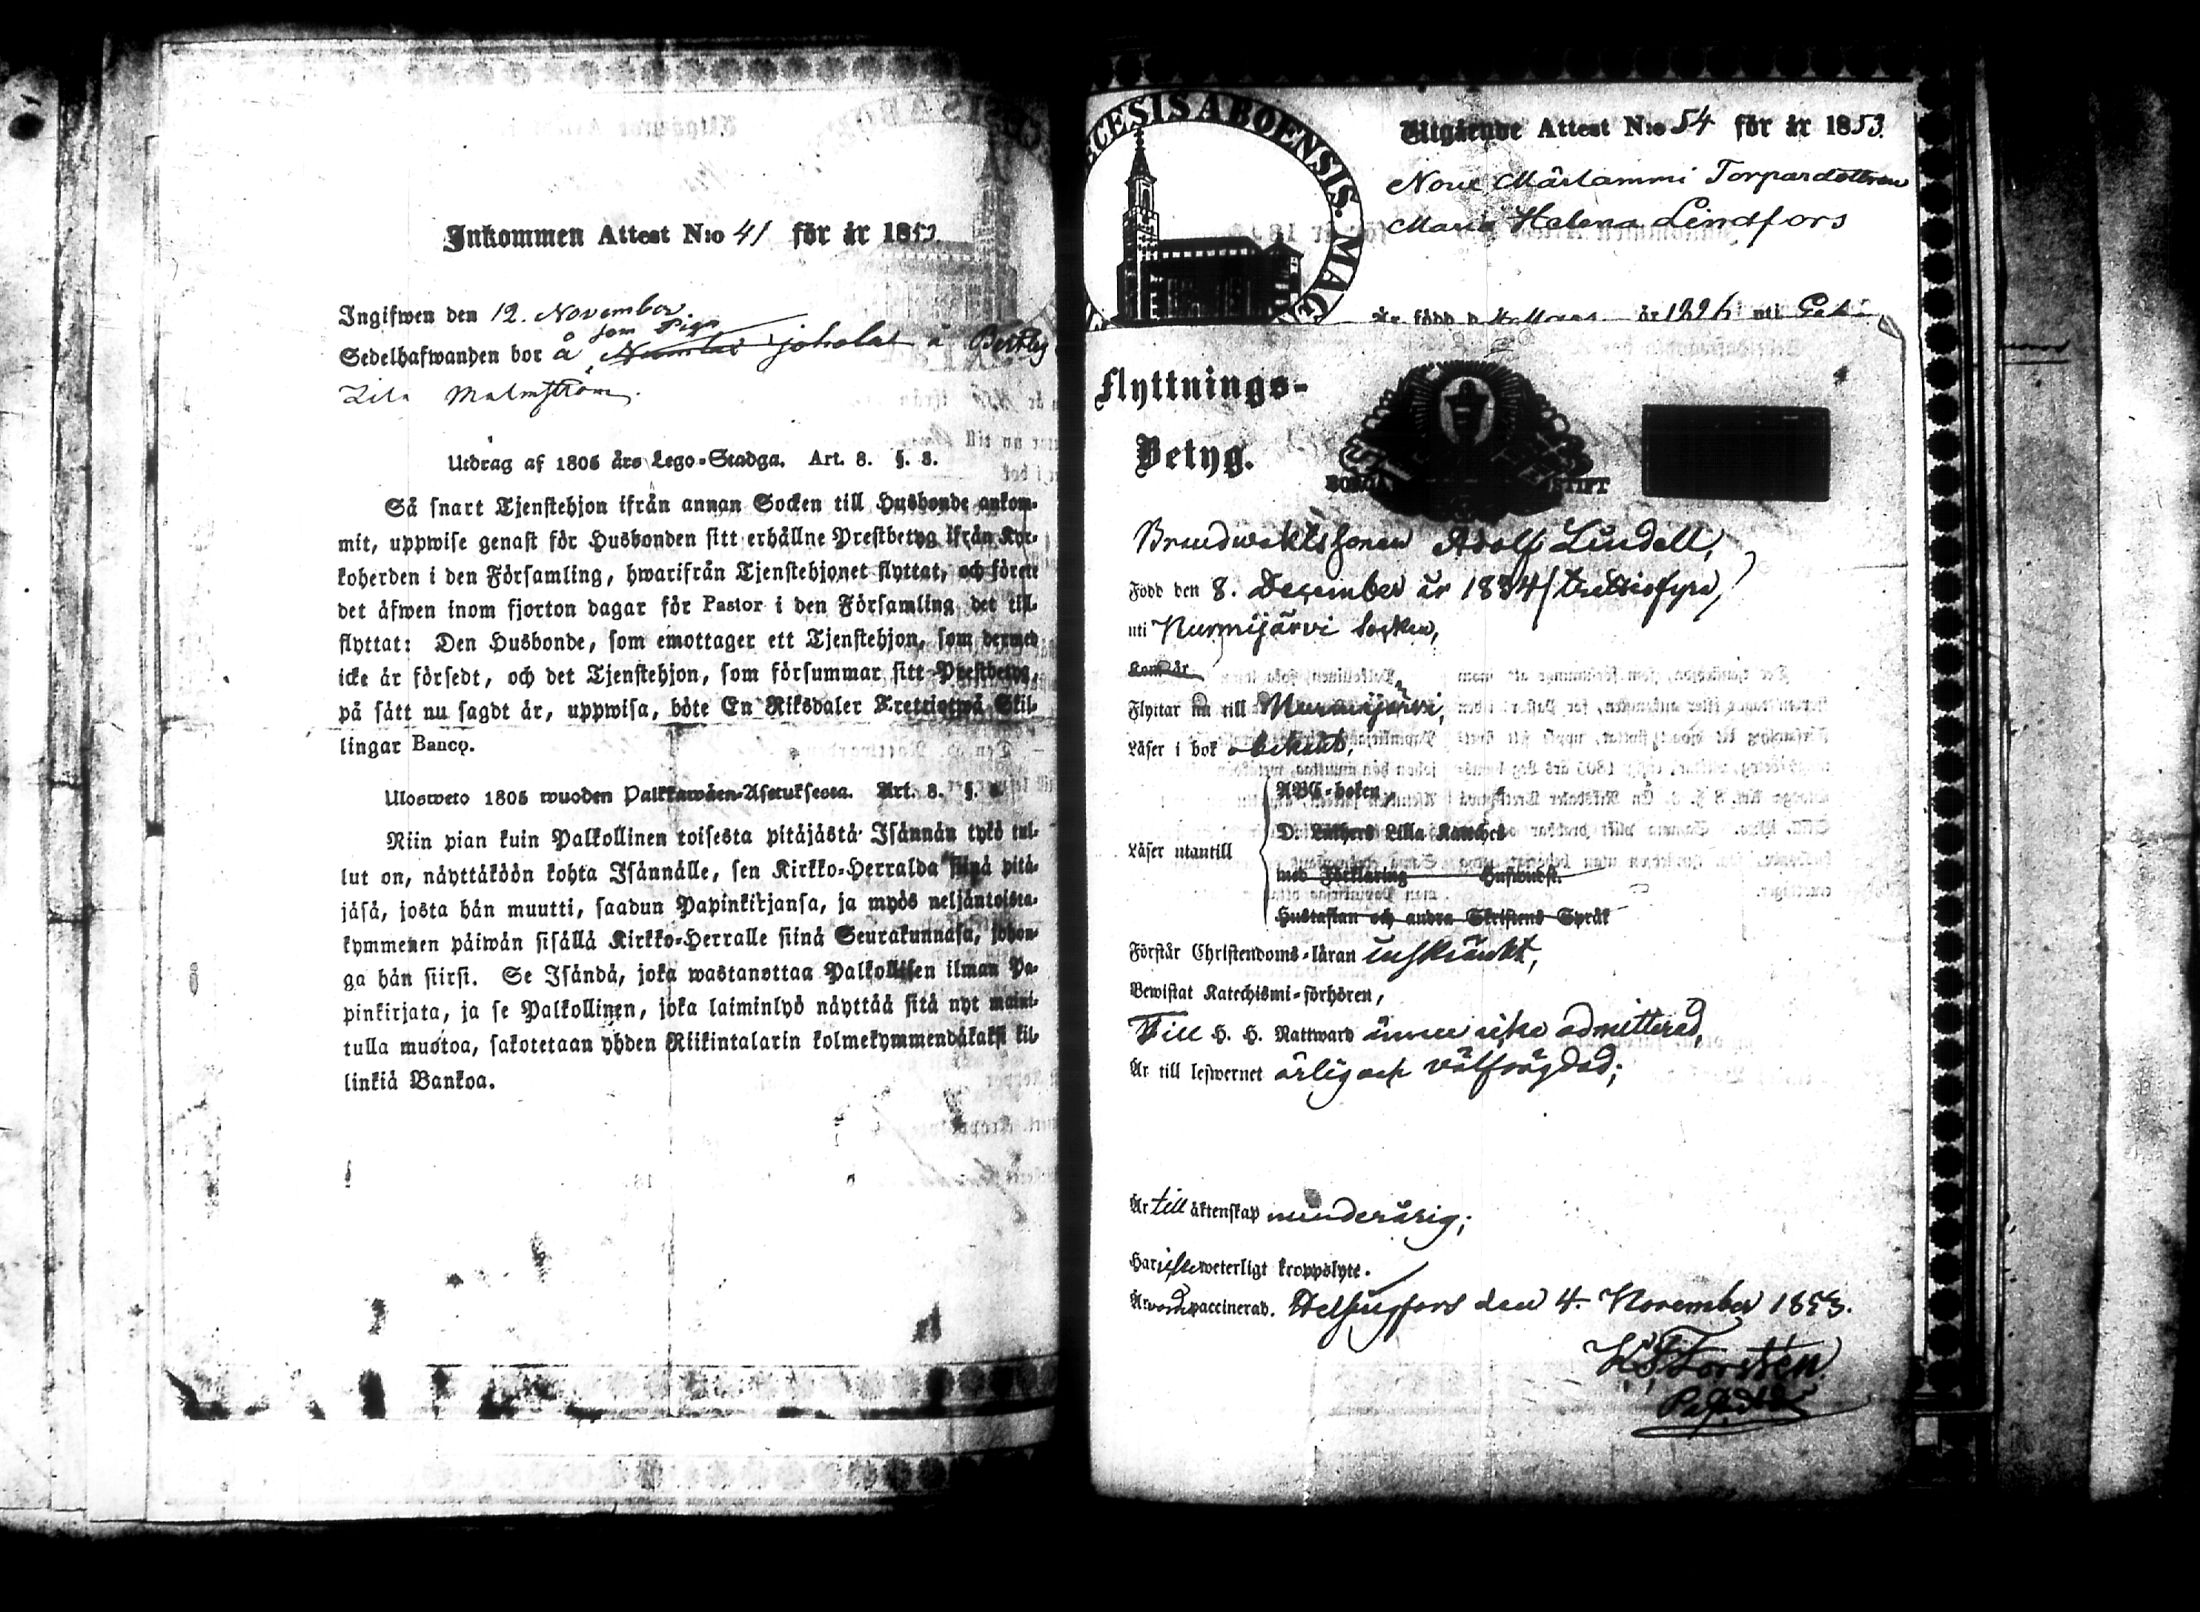 Inkommen Attest N:o 41 för år 1853
Ingifwen den 12. November.
som Piga
Sedelhafwanden bor å joholax
Malmström.
Utdrag af 1805 års Lego-Stadga. Art. 8. §. 8.
Så snart Tjenstehjon ifrån annan Socken till Husbonde ankom-
mit, uppwise genast för Husbonden sitt erhållne Prestbetyg ifrån Kyr-
koherden i den Församling, hwarifrån Tjenstehjonet flyttat, och förete
det äfwen inom fjorton dagar för Pastor i den Församling det till-
flyttat: Den Husbonde, som emottager ett Tjenstehjon, som dermed
icke är försedt, och det Tjenstehjon, som försummar sitt Prestbetyg,
på sätt nu sagdt är, uppwisa, böte En Riksdaler Trettiotwå Skil-
lingar Banco.
Ulosweto 1805 wuoden Palkkawäen-Asetuksesta. Art. 8. §.
Niin pian kuin Palkollinen toisesta pitäjästä Isännän tykö tul-
lut on, näyttäköön kohta Isännälle, sen Kirkko-Herralda siinä pitä-
jäsä, josta hän muutti, saadun Papinkirjansa, ja myös neljäntoista-
kymmenen päiwän sisällä Kirkko-Herralle siinä Seurakunnasa, johon-
ga hän siirsi. Se Isändä, joka wastanottaa Palkollisen ilman Pa-
pinkirjata, ja se Palkollinen, joka laiminlyö näyttää sitä nyt maini-
tulla muotoa, sakotetaan yhden Riikintalarin kolmekymmendäkaksi kil-
linkiä Bankoa.
DIOECESIS ABOENSIS. MAG
Utgående Attest N:o 54 för år 1853.
Torpardottren
Maria Helena Lindfors
Är född år 1826 uti
Flyttnings-
Betyg.
STIFT
Brandwaktssonen Adolf Lindell,
Född den 8. December år 1834 (trettiofyra)
uti Nurmijärvi Socken,
Kom år
Flyttar nu till Nurmijärvi,
Läser i bok obekant,
ABC-boken
D:r Luthers Lilla Kateches
Läser utantill
med Förklaring Huswudst.
Hustaflan och andra Skriftens Språk
Förstår Christendoms-läran inskränkt,
Bewistat Katechismi-förhören,
Till H. H. Nattward ännu icke admitterad,
Är till lefwernet ärlig och välfrägdad;
Är till äktenskap minderårig;
Har icke weterligt kroppslyte.
Är vaccinerad. Helsingfors den 4. November 1853.
Forstén